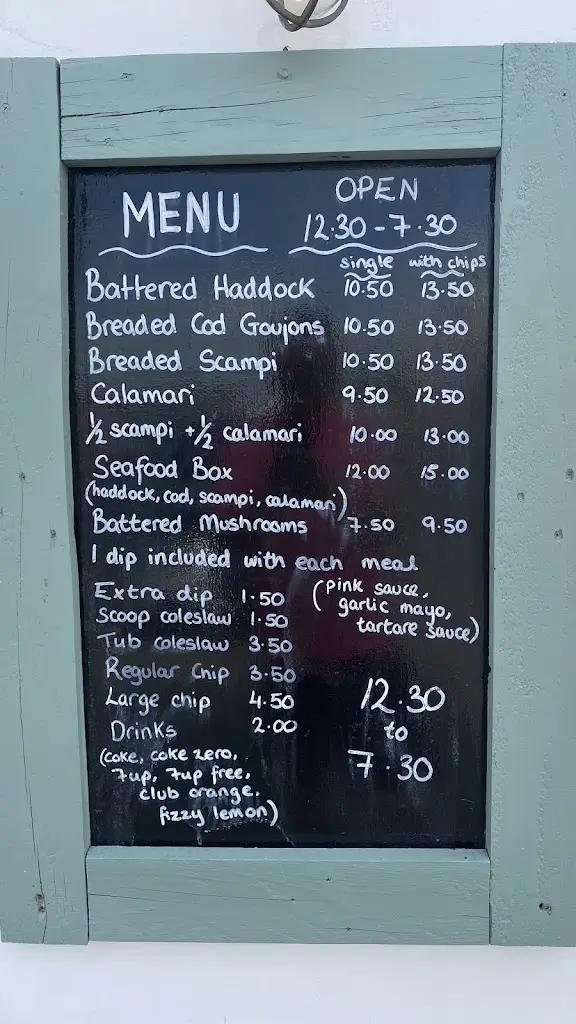 MENU
OPEN
12.30 - 7.30
single with chips
Battered Haddock 10.50 13.50
Breaded Cod Goujons 10.50 13.50
Breaded Scampi 10.50 13.50
Calamari 9.50 12.50
1/2 scampi + 1/2 calamari 10.00 13.00
Seafood Box 12.00 15.00
(haddock, cod, scampi, calamari)
Battered Mushrooms 7.50 9.50
1 dip included with each meal
(pink sauce,
garlic mayo,
tartare sauce)
Extra dip 1.50
Scoop coleslaw 1.50
Tub coleslaw 3.50
Regular Chip 3.50
Large chip 4.50
Drinks 2.00
(coke, coke zero,
7up, 7up free,
club orange.
fizzy lemon)
12.30
to
7.30